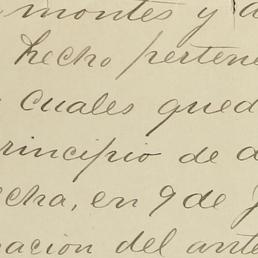 montes y a
hecho pertene
cuales qued
rincipio de d
echa, en 9 de J
nacion del ante